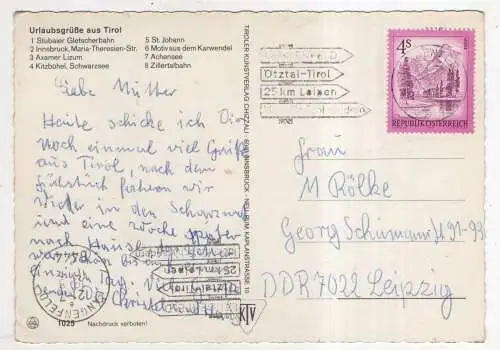 Urlaubsgrüße aus Tirol
1 Stubaier Gletscherbahn
2 Innsbruck, Maria-Theresien-Str.
3 Axamer Lizum
4 Kitzbühel, Schwarzsee
5 St. Johann
6 Motiv aus dem Karwendel
7 Achensee
8 Zillertalbahn
Liebe Mutter
Heute schicke ich Dir
noch einmal viel Grüße
aus Tirol, nach dem
Frühstück fahren wir
wieder in den Schwarzw.
und eine Woche später
nach Hause
Tag. Viel
Christel
1025
Nachdruck verboten!
TIROLER KUNSTVERLAG CHIZZALI
INNSBRUCK
KTV
Ötztal-Tirol
25 km Loipen
4S
REPUBLIK ÖSTERREICH
Frau
M Rölke
Georg Schumannstr 91-93
DDR 7022 Leipzig
LÄNGENFELD
6444
25 km Loipen
Ötztal-Tirol